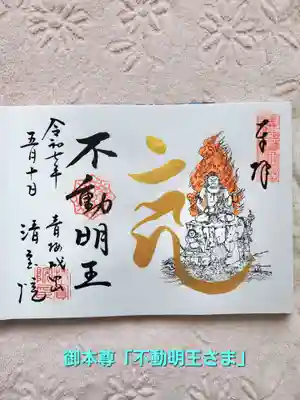 奉拝
不動明王
青梅成田山
清宝院
令和七年
五月十日
御本尊「不動明王さま」